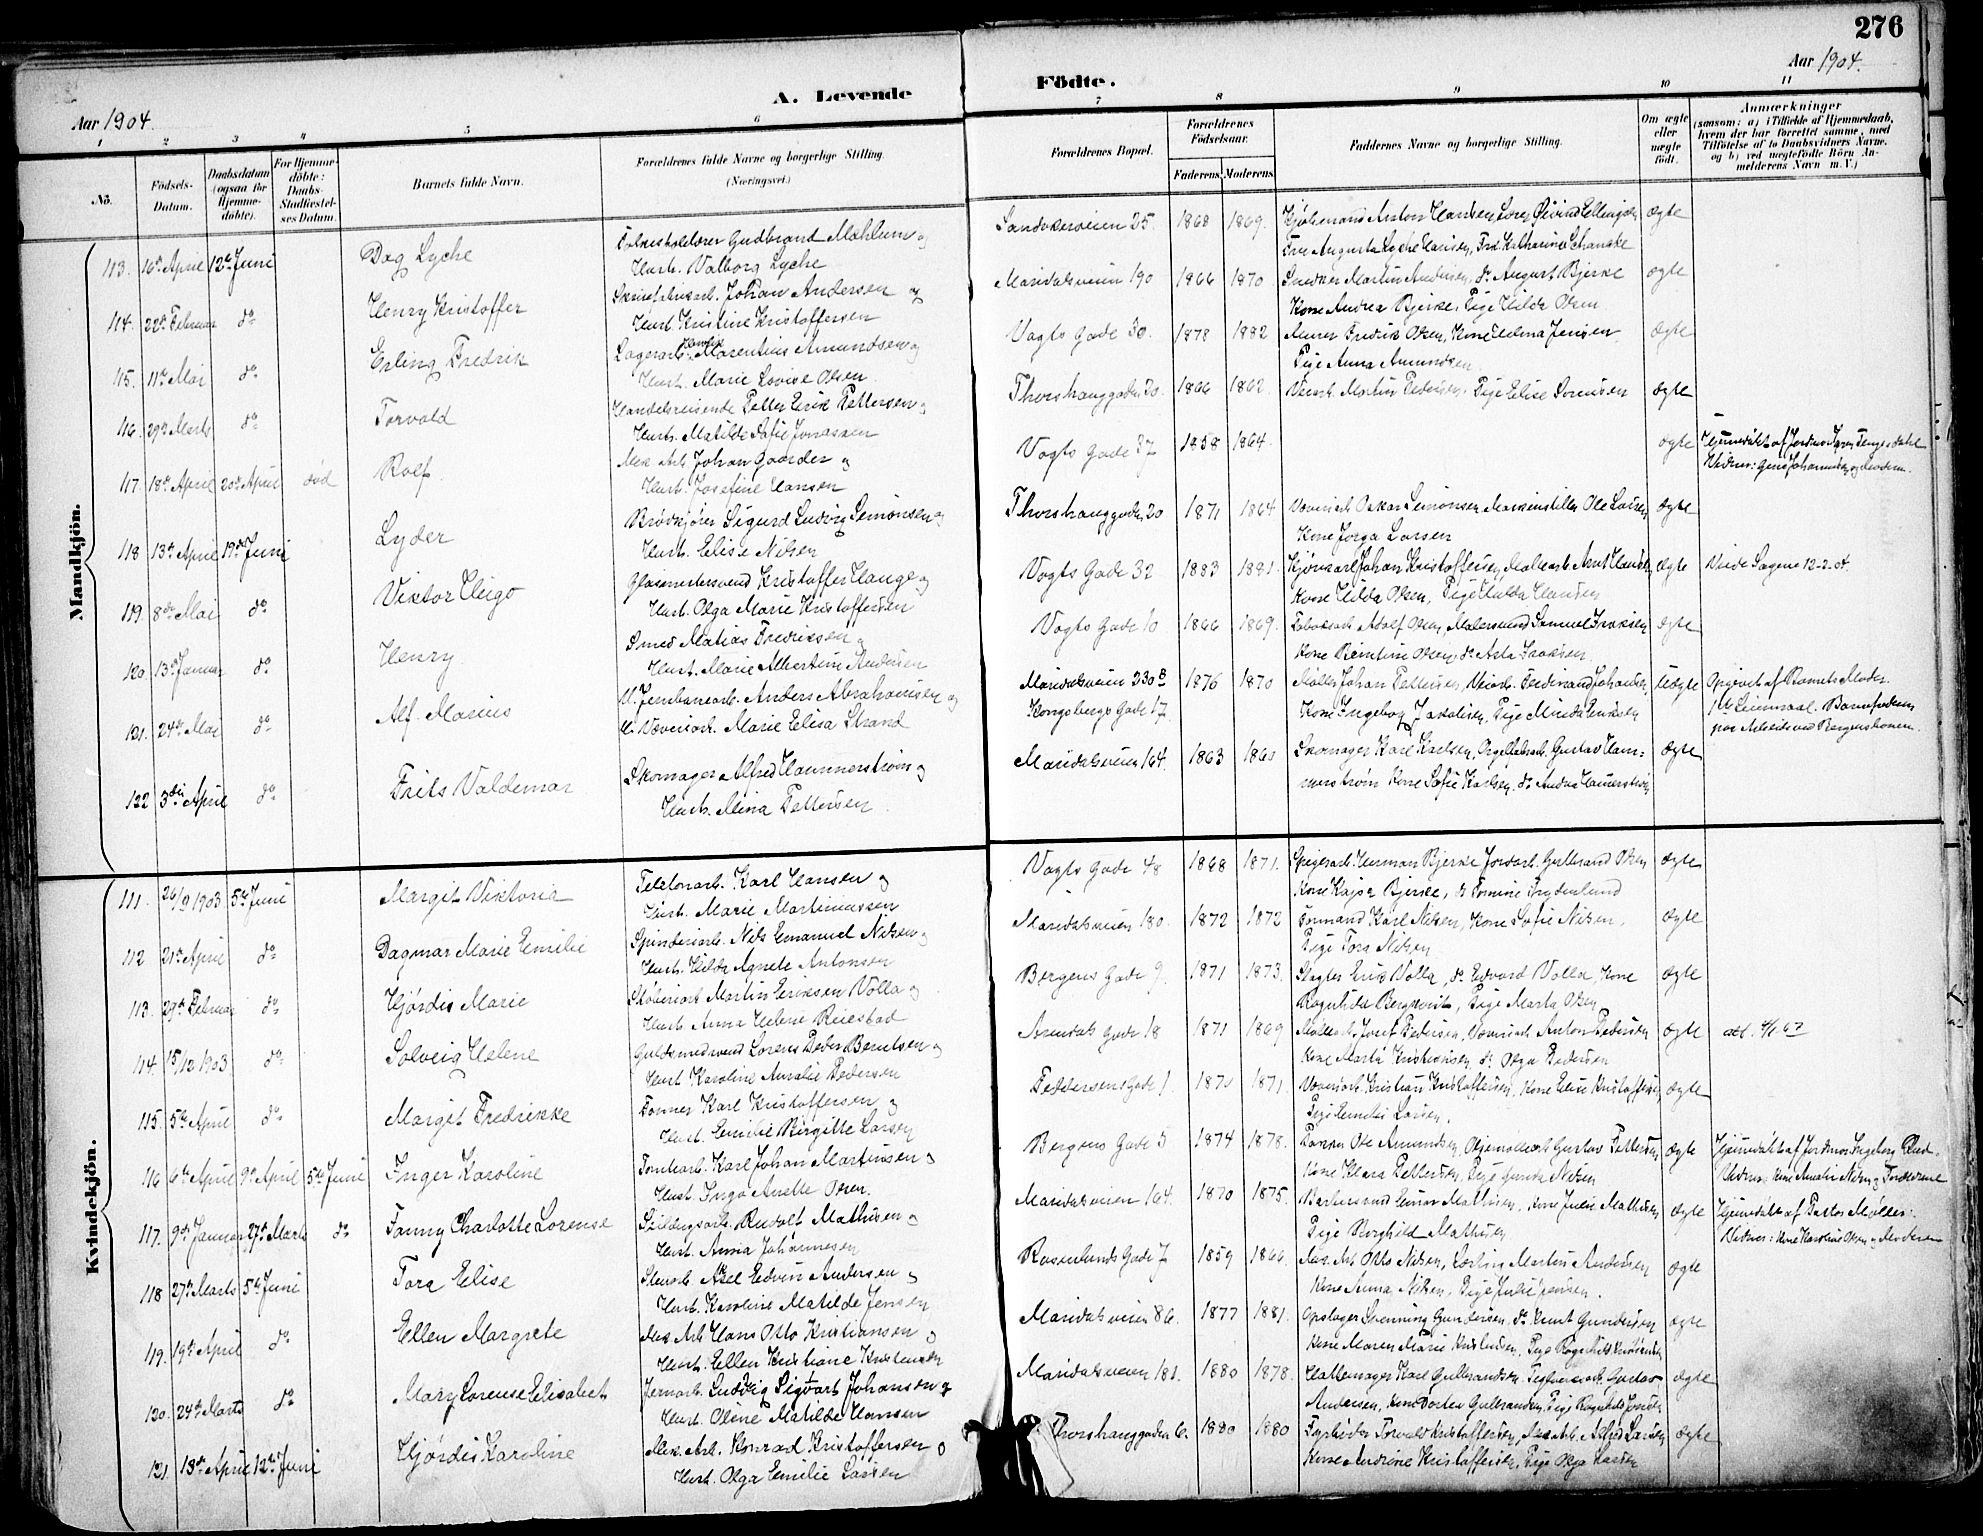 276
Aar 1904.
A. Levende
Födte.
Aar 1904.
1 2 3 4 5 6 7 8 9 10 11
No.
Födsels-Datum.
Daabsdatum (ogsaa for Hjemmedöbte).
For Hjemmedöbte: Daabs-Stadfæstelses Datum.
Barnets fulde Navn.
Forældrenes fulde Navne og borgerlige Stilling. (Næringsvei.)
Forældrenes Bopæl.
Forældrenes Födselsaar.
Faderens. Moderens.
Faddernes Navne og borgerlige Stilling.
Om ægte eller uægte födt.
Anmærkninger
(saasom: a) i Tilfælde af Hjemmedaab, hvem der har forrettet samme, med Tilföielse af to Daabsvidners Navne. og b) ved uægtefödte Börn Anmelderens Navn m. V.)
Mandkjön.
113. 16de April 12te Juni Dag Lyche Gudbrand Mæhlum og Sandakerveien 25. 1868 1869. Anton Hansen, ægte
Hust. Valborg Lyche Fru Augusta Lyche Hansen, Frk. Katharine Schanske
114. 22de Februar do Henry Kristoffer Johan Andersen og Maridalsveien 190 1866 1870 Snedker Martin Andersen, do August Bjerke ægte
Hust. Kristine Kristoffersen Kone Andrea Bjerke, Pige Hilda Olsen
115. 11te Mai do Erling Fredrik Lagerarb. Marentius Amundsen og Vogts Gade 30. 1878 1882 Murer Fredrik Olsen, Kone Helma Jensen ægte
Hust. Marie Lovise Olsen. Pige Anna Amundsen
116. 29de Marts do Torvald Handelsreisende Petter Erik Pettersen og Thorshauggaden 20. 1866 1862 Martin Pedersen, Pige Elise Sorensen ægte
Hust. Matilde Sofie Jonassen
117. 18de April 20de April död Rolf. Mek Arb Johan Gaarder og Vogts Gade 37 1858 1864. ægte Hjemmedöbt af Jordmor
Hust. Josefine Hansen
118 13de April 19de Juni Lyder Brödkjörer Sigurd Ludvig Simonsen og Thorshauggaden 20 1871 1864 Oskar Simonsen, Maskinstiller Ole Larsen ægte
Hust. Elise Nilsen Kone Jorga Larsen
119. 8de Mai do Viktor Helgo Glasmestersvend Kristoffer Hauge og Vogts Gade 32 1883 1881. Johan Kristoffersen, ægte Viede Sagene 12-2-04.
Hust. Olga Marie Kristoffersen Kone Hilda Olsen, Pige Hulda Hansen
120. 13de Januar do Henry. Smed Matias Fredriksen og Vogts Gade 10 1866 1869. Adolf Olsen, Malersvend Samuel Isaksen ægte
Hust. Marie Albertine Andersen Kone Berntine Olsen, do Asta Isaksen
121. 24de Mai do Alf. Marius U. Jernbanearb. Anders Abrahamsen og Maridalsveien 230 B 1876 1870 Möller Johan Pettersen, Ferdinand Johansen Uægte Opgivet af Barnets Moder.
U. Væveriarb. Marie Elisa Strand Kongsbergs Gade 17 Kone Ingeborg Jakobsen, Pige Minda Eriksen 1ste Leiermaal. Barnefaderen
paa Arbeide ved Bergensbanen.
122 3die April do Frits Valdemar Skomager Alfred Hammerström og Maridalsveien 164. 1863 1860 Skomager Karl Karlsen, Gustav Ham= ægte
Hust. Mina Pettersen merström Kone Sofie Karlsen, do Andrea Hammerström
Kvindekjön.
111. 26/9 1903 5te Juni Margit Viktoria Telefonarb. Karl Hansen og Vogts Gade 48 1868 1871. Spigerarb. Herman Bjerke Jordarb. Gulbrand Olsen ægte
Hust. Marie Martinussen Kone Kajsa Bjerke, do Frydenlund
112 21de April do Dagmar Marie Emilie Spinderiarb. Nils Emanuel Nilsen og Maridalsveien 180. 1872 1872 Formand Karl Nilsen, Kone Sofie Nilsen, ægte
Hust. Hilda Agnete Antonsen Pige Tora Nilsen
113. 29de Februar do Hjördis Marie Stöberiarb Martin Eriksen Volla og Bergens Gade 9. 1871 1873. Slagter Erik Volla, do Edvard Volla, Kone ægte
Hust. Anna Helene Reiestad Ragnhilda Bergkvist, Pige Marta Olsen
114 15/12 1903 do Solveig Helene Guldsmedsvend Lorens Peder Berntsen og Arendals Gade 18 1871 1869 Josef Pedersen, Anton Pedersen ægte
Hust. Karoline Amalie Pedersen Kone Marta Kristiansen, do Olga Pedersen
115. 5te April do Margit Fredrikke Former Karl Kristoffersen og Feddersens Gade 1. 1870 1871. Kristian Kristoffersen, Kone Elise Kristoffersen ægte
Hust. Emilie Birgitte Larsen Pige Emilie Larsen.
116 6te April 9de April 5te Juni Inger Karoline Tomtearb. Karl Johan Martinsen og Bergens Gade 5 1874 1878. Ole Amundsen, Gustav Pettersen ægte Hjemmedöbt af Jordmor Ingeborg
Hust. Inga Anette Olsen. Kone Klara Pettersen, Pige Gunda Nilsen Vidner: Kone Amalie Nilsen og
117. 9de Januar 27de Marts do Fanny Charlotte Lorense Rudolf Mathisen og Maridalsveien 164. 1870 1875. Barbersvend Einar Mathisen, Kone Julie Mathisen ægte Hjemmedöbt af Pastor Möller:
Hust. Anna Johannesen Pige Borghild Mathisen Vidner: Kone Karoline Olsen og Moderen
118 27de Marts 5te Juni Tora Elise Stenarb. Aksel Edvin Andersen og Rosenlunds Gade 7 1859 1866. Mek. Arb Otto Nilsen, Lærling Martin Andersen ægte
Hust. Karoline Matilde Jensen Kone Anna Nilsen, Pige Julie Jensen.
119. 19de April do Ellen Margrete Mek Arb Hans Otto Kristiansen og Maridalsveien 86. 1877 1881. Opslager Henning Gundersen, do Knut Gundersen ægte
Hust. Ellen Kristiane Kristensen Kone Maren Marie Kristensen, Pige Ragnhild Kristensen
120. 24de Marts do Mary Lorense Elisabet Jernarb. Ludvig Sigvart Johansen og Maridalsveien 181. 1880 1878. Hattemager Karl Gulbrandsen, Gustav ægte
Hust. Oline Matilde Hansen Andersen, Kone Dorten Gulbrandsen, Pige Ragnhild
121. 13de April 12te Juni Hjördis Karoline Mek. Arb. Konrad Kristoffersen og Thorshauggaden 6. 1880 1880 Fyrböder Torvald Kristoffersen, Mek Arb. Alfred Larsen ægte
Hust. Olga Emilie Larsen Kone Andrine Kristoffersen, Pige Olga Larsen